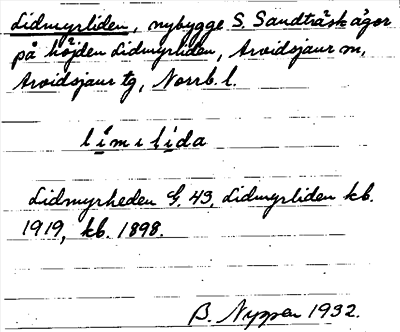 Lidmyrliden, nybygge S. Sandträsk ägor
på höjden Lidmyrliden, Arvidsjaur sn,
Arvidsjaur tg, Norrb. l.
lím ı lída
Lidmyrheden G. 43, Lidmyrliden kb.
1919, kb. 1898.
B. Nyppen 1932.